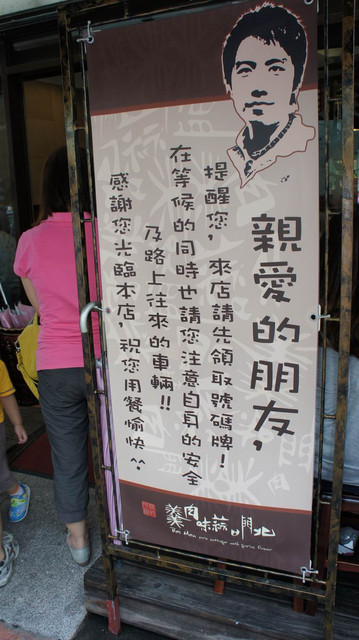 親愛的朋友，
提醒您，來店請先領取號碼牌！
在等候的同時也請您注意自身的安全
及路上往來的車輛!!
感謝您光臨本店，祝您用餐愉快^^
北門口蒜味肉羹